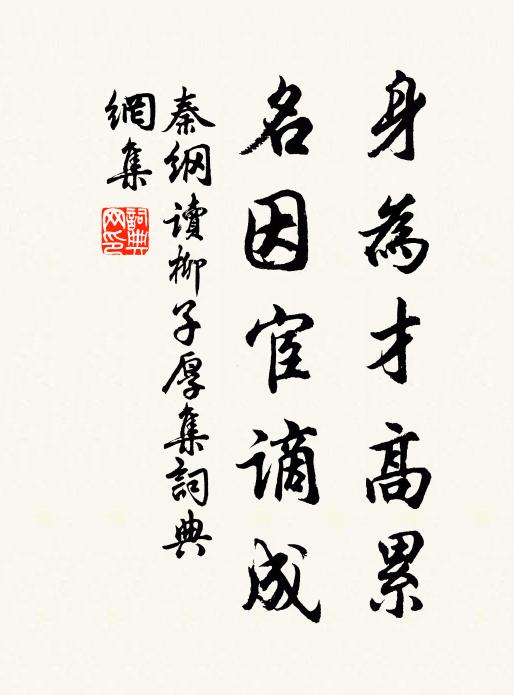 身為才高累
名因宦謫成
秦綱讀柳子厚集詞典
網集
詞典
网印